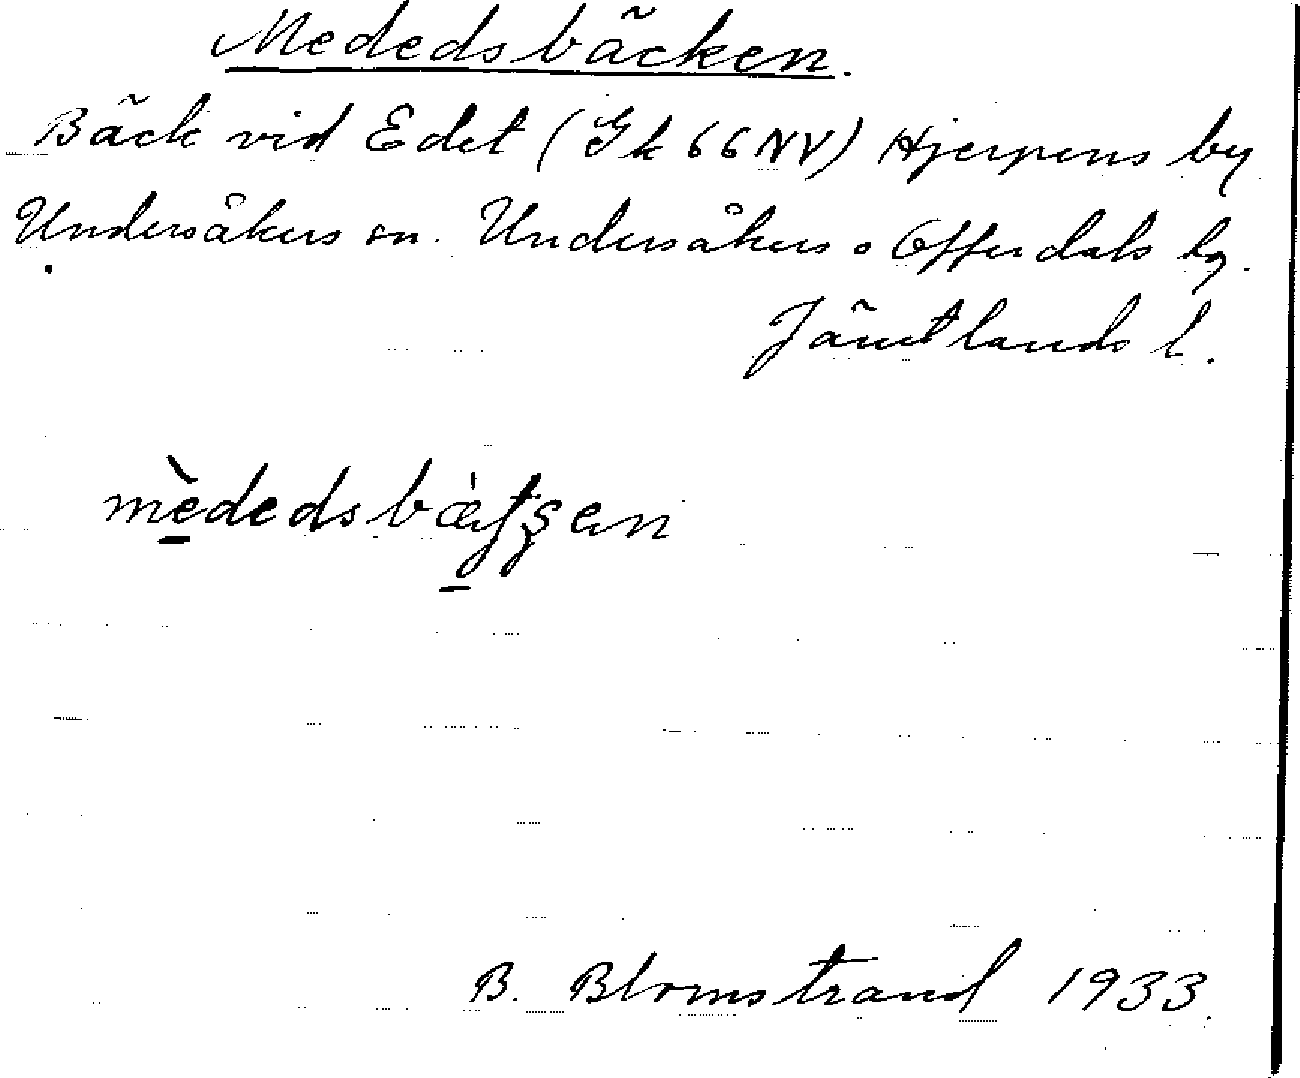 Mededsbäcken.
Bäck vid Edet (Gk 66 NV) Hjerpens by
Undersåkers sn. Undersåkers o Offerdals tg.
Jämtlands l.
mèdedsbæ̀tʂen
B. Blomstrand 1933.